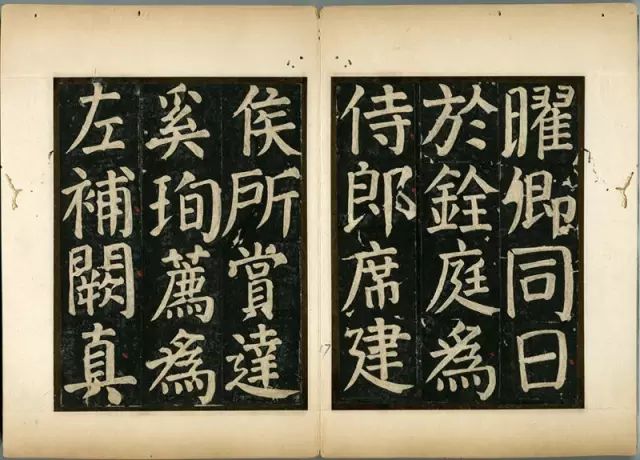 曜卿同日
於銓庭為
侍郎席建
侯所賞達
奚珣薦為
左補闕真